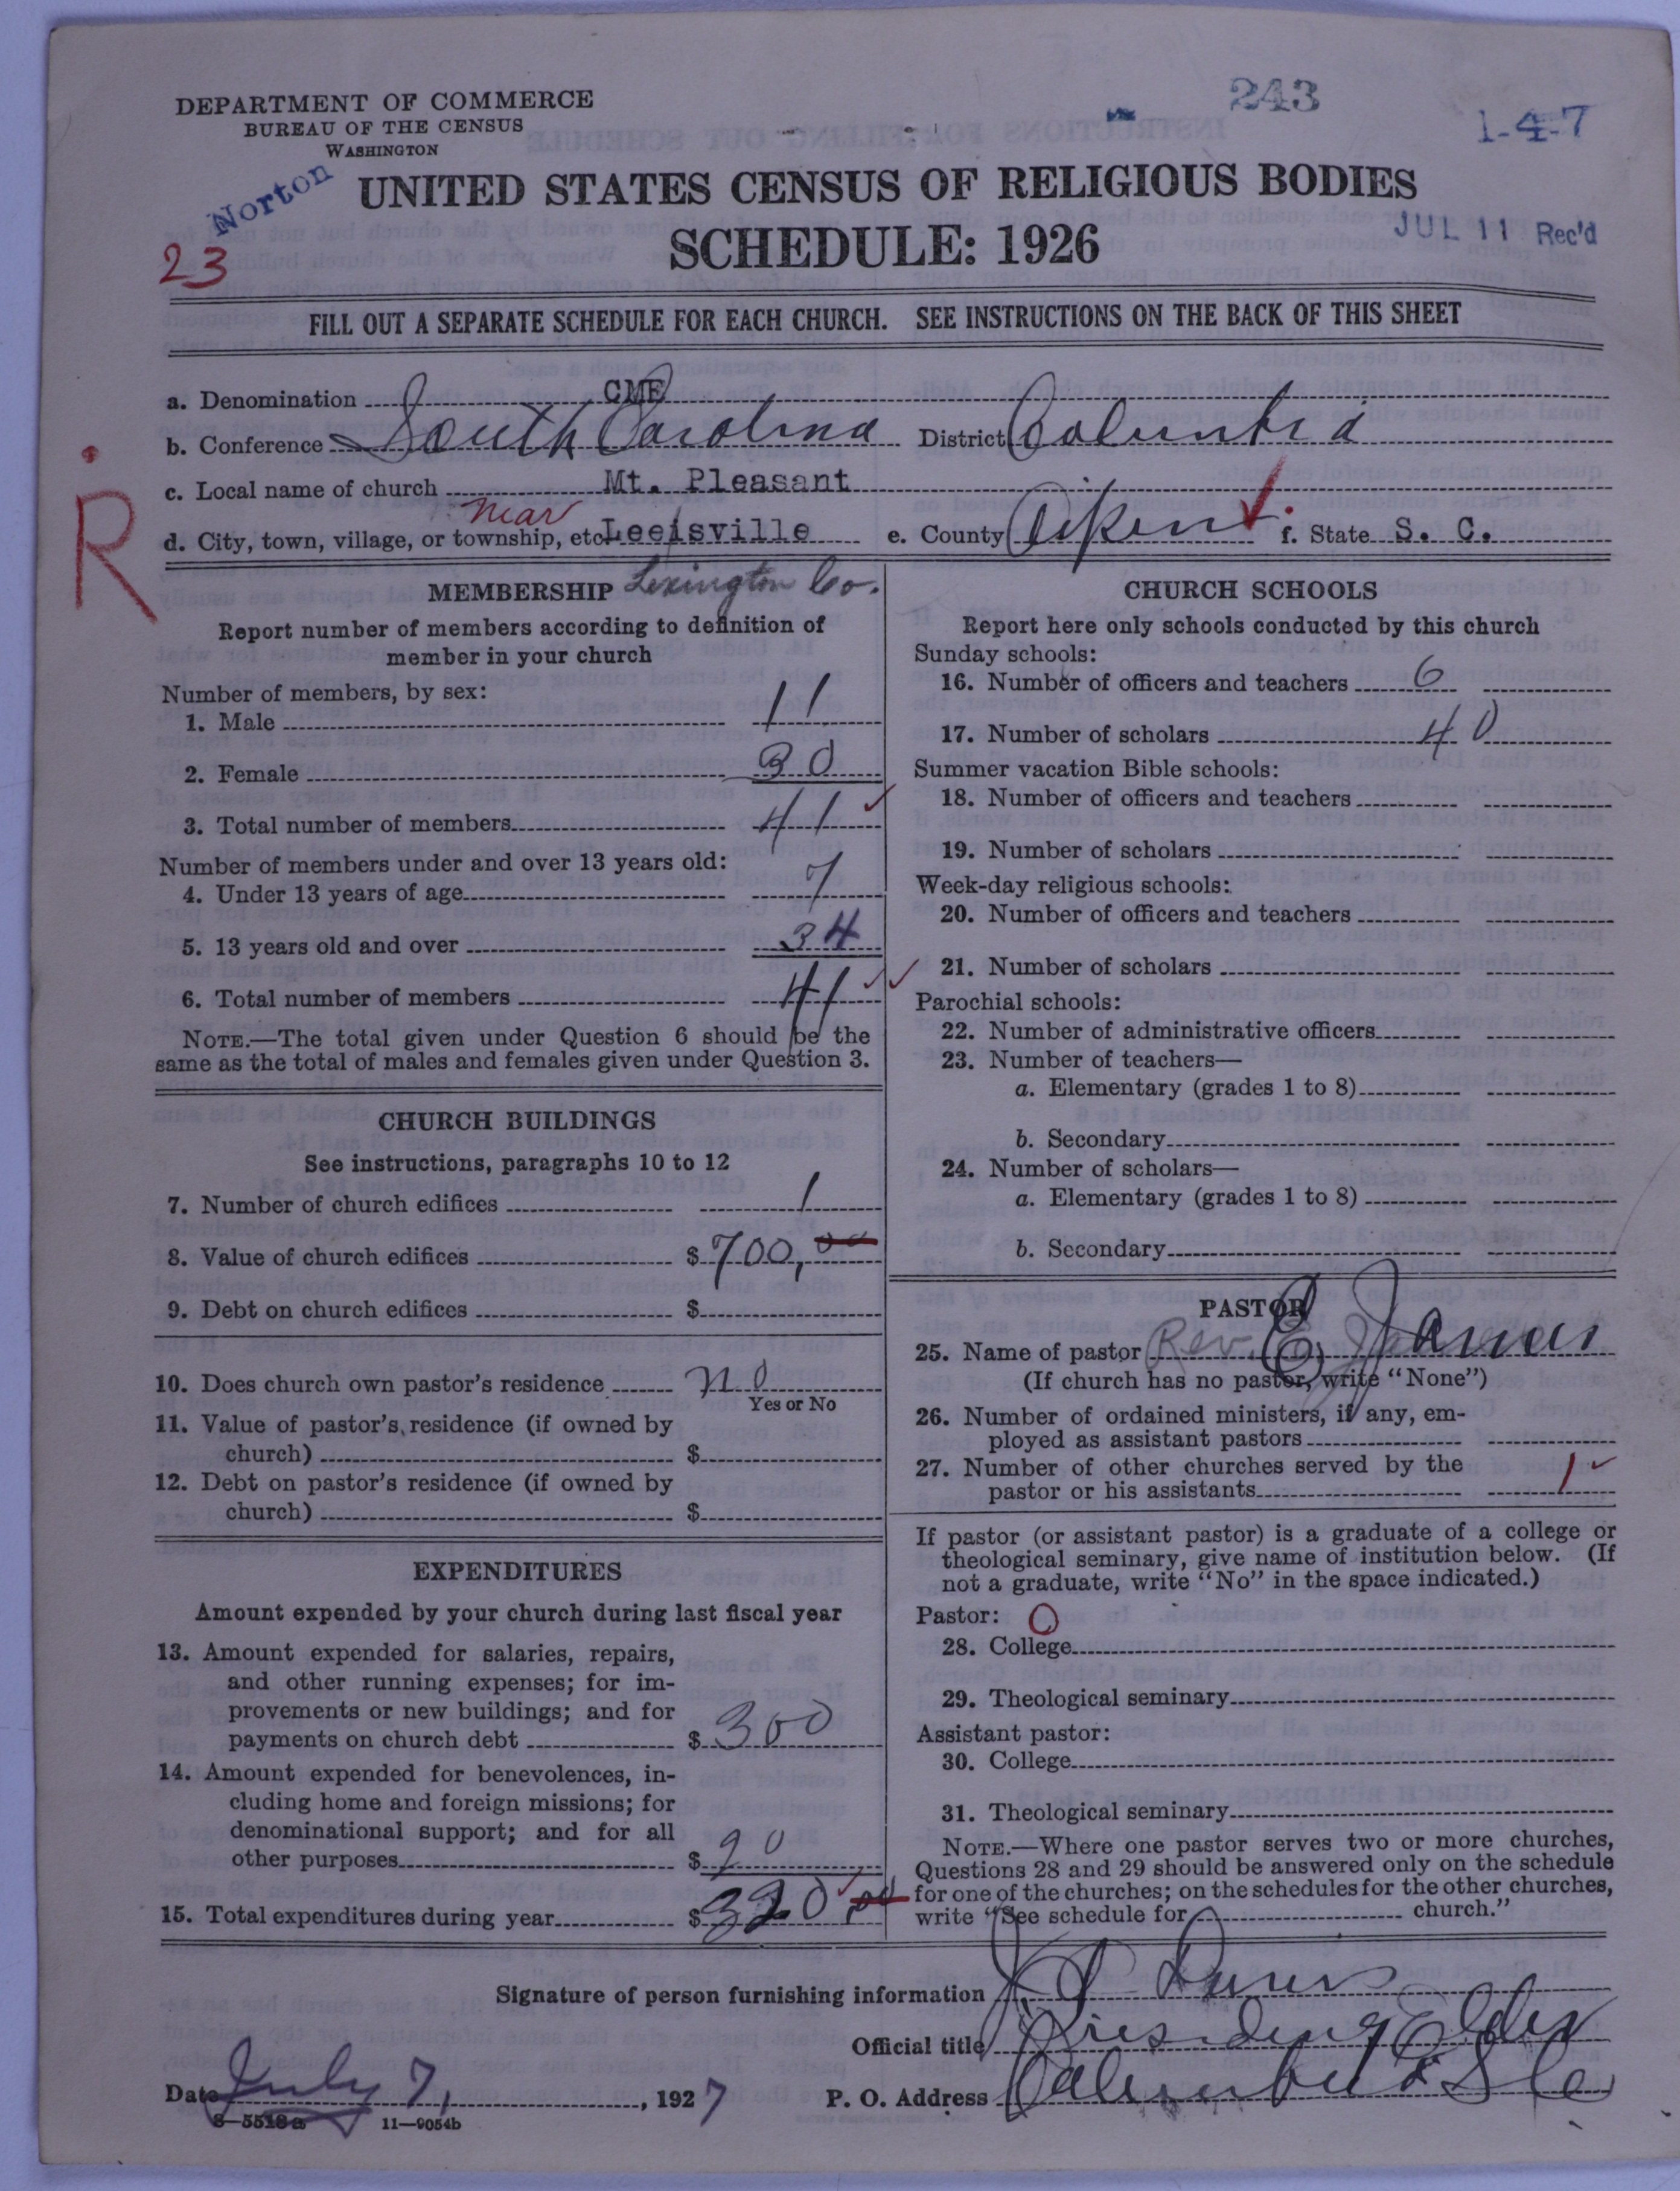 DEPARTMENT OF COMMERCE
BUREAU OF THE CENSUS
WASHINGTON
243
1-4-7
Norton
23
UNITED STATES CENSUS OF RELIGIOUS BODIES
SCHEDULE: 1926
JUL 11 Rec'd
FILL OUT A SEPARATE SCHEDULE FOR EACH CHURCH. SEE INSTRUCTIONS ON THE BACK OF THIS SHEET
a. Denomination CME
b. Conference South Carolina District Columbia
c. Local name of church Mt. Pleasant
R
near
d. City, town, village, or township, etc. Leeisville e. County Aiken f. State S. C.
MEMBERSHIP Lexington Co.
Report number of members according to definition of
member in your church
Number of members, by sex:
1. Male 11
2. Female 30
3. Total number of members 41
Number of members under and over 13 years old:
4. Under 13 years of age 7
5. 13 years old and over 34
6. Total number of members 41
NOTE.—The total given under Question 6 should be the
same as the total of males and females given under Question 3.
CHURCH BUILDINGS
See instructions, paragraphs 10 to 12
7. Number of church edifices 1
8. Value of church edifices $ 700,00
9. Debt on church edifices $
10. Does church own pastor's residence no
Yes or No
11. Value of pastor's residence (if owned by
church) $
12. Debt on pastor's residence (if owned by
church) $
EXPENDITURES
Amount expended by your church during last fiscal year
13. Amount expended for salaries, repairs,
and other running expenses; for im-
provements or new buildings; and for
payments on church debt $ 300
14. Amount expended for benevolences, in-
cluding home and foreign missions; for
denominational support; and for all
other purposes $ 20
15. Total expenditures during year $ 320.00
CHURCH SCHOOLS
Report here only schools conducted by this church
Sunday schools:
16. Number of officers and teachers 6
17. Number of scholars 40
Summer vacation Bible schools:
18. Number of officers and teachers
19. Number of scholars
Week-day religious schools:
20. Number of officers and teachers
21. Number of scholars
Parochial schools:
22. Number of administrative officers
23. Number of teachers—
a. Elementary (grades 1 to 8)
b. Secondary
24. Number of scholars—
a. Elementary (grades 1 to 8)
b. Secondary
PASTOR
25. Name of pastor Rev. E. James
(If church has no pastor, write "None")
26. Number of ordained ministers, if any, em-
ployed as assistant pastors
27. Number of other churches served by the
pastor or his assistants 1
If pastor (or assistant pastor) is a graduate of a college or
theological seminary, give name of institution below. (If
not a graduate, write "No" in the space indicated.)
Pastor: O
28. College
29. Theological seminary
Assistant pastor:
30. College
31. Theological seminary
NOTE.—Where one pastor serves two or more churches,
Questions 28 and 29 should be answered only on the schedule
for one of the churches; on the schedules for the other churches,
write "See schedule for church."
Signature of person furnishing information
Official title Presiding Elder
Date July 7, 1927 P. O. Address Columbia S C
8—5518a 11—9054b